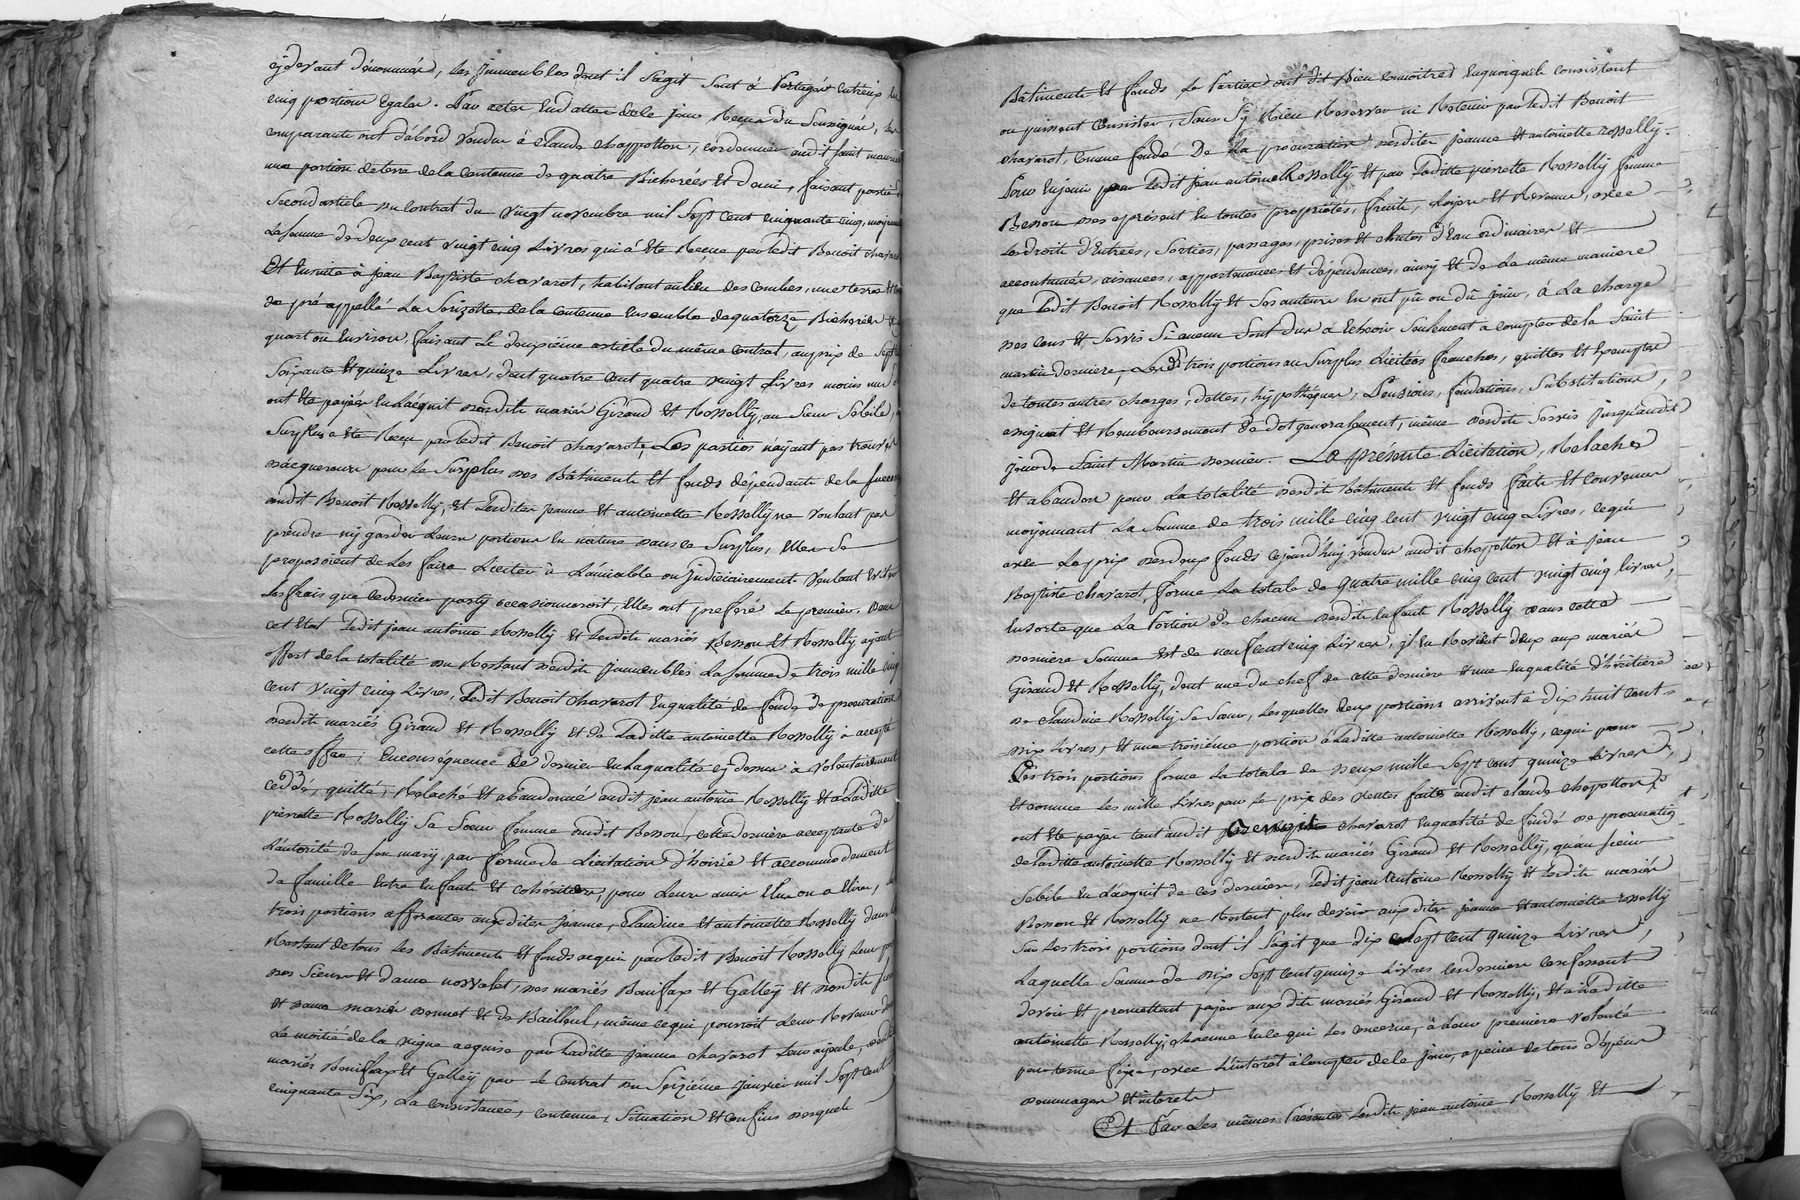 cydevant dénommés, les Immeubles dont il s'agit sont à Partager entr'eux en
cinq portions Egales. Par actes En datte de ce jour Reçus du Soussigné, les
comparants ont d'abord vendu à Claude chappotton, cordonnier audit saint maurice
une portion de terre de la contenue de quatre Bicherées Et demi, faisant partie
second article du contrat du vingt novembre mil sept cent cinquante cinq, moyennant
La somme de deux cent vingt cinq Livres qui a Eté Reçue par ledit Benoit chavarot
Et Ensuite à jean Baptiste chavarot, habitant au lieu des combes, une terre et
de pré appellé La Serizolle, de la contenue Ensemble de quatorze Bicherées
quart ou Environ, faisant Le deuxième article du même contrat, au prix de sept
soixante Et quinze Livres, dont quatre cent quatre vingt Livres moins un
ont Eté payés En L'acquit desdits mariés Giraud Et Rosselly, au sieur Sebile,
Surplus a Eté Reçu par ledit Benoit chavarot, Les parties n'ayant pas trouvé
d'acquereurs pour le Surplus des Bâtiments Et fonds dépendants de la succession
audit Benoit Rosselly, Et Lesdites jeanne Et antoinette Rosselly ne voulant pas
prendre ny garder Leurs portions En nature dans ce Surplus, Elles se
proposoient de Les faire Liciter à L'amiable ou judiciairement. Voulant Eviter
Les frais que ce dernier party occasionneroit, Elles ont preferé Le premier. Dans
cet Etat Ledit jean antoine Rosselly Et Lesdits mariés Besson Et Rosselly ayant
offert de la totalité du Restant desdits Immeubles La somme de trois mille cinq
cent vingt cinq Livres, Ledit Benoit chavarot En qualité de fondé de procuration
desdits mariés Giraud Et Rosselly Et de Laditte antoinette Rosselly a accepté
cette offre; En conséquence ce dernier En la qualité cy dessus a volontairement
ceddé, quitté, Relaché Et abandonné audit jean antoine Rosselly Et à Laditte
pierrette Rosselly Sa Soeur femme dudit Besson, cette derniere acceptante de
L'autorité de son mary, par forme de Licitation d'hoirie Et accommodement
de famille Entre Enfants Et cohéritiers, pour Leurs amis Elus ou a Elire,
trois portions afferantes auxdittes jeanne, claudine Et antoinette Rosselly dans le
Restant de tous Les Bâtiments Et fonds acquis par Ledit Benoit Rosselly Leur père
des Sieur Et dame norvalet, des mariés Bonifax Et Galley Et dudit sieur
Et dame mariés donnet Et de Bailleul, même ce qui pourroit Leur Revenir de
La moitié de la vigne acquise par Laditte jeanne chavarot Leur ayeule, desdits
mariés Bonifax Et Galley par Le contrat du Seizième janvier mil sept cent
cinquante Six, La consistance, contenue, Situation Et confins desquels
Bâtiments Et fonds Les Parties ont dit Bien connoitre, En quoiqu'ils consistent
ou puissent consister, Sans S'y Rien Reserver ni Retenir par ledit Benoit
chavarot, comme fondé De La procuration desdittes jeanne Et antoinette rosselly.
Pour En jouir par Ledit jean antoine Rosselly Et par Laditte pierrette Rosselly femme
Besson dès aprésent En toutes propriétés, fruits, Loyers Et Revenus, avec
Les droits d'Entrées, Sorties, passages, prises Et chutes d'Eau ordinaires Et
accoutumés, aisances, appartenances Et dépendances, ainsy Et de La même maniere
que Ledit Benoit Rosselly Et Ses auteurs En ont pû ou dû jouir, à La charge
des cens Et Servis Si aucuns Sont dus à Echeoir Seulement a compter de la Saint
martin derniere, Lesd. trois portions au Surplus Licitées franches, quittes Et Exemptes
de toutes autres charges, dettes, hypothèques, Pensions, fondations, Substitutions,
assignat Et Remboursement de dot généralement, même desdits Servis jusqu'audit
jour de Saint Martin dernier. La présente Licitation, Relache
Et abandon pour La totalité desdits Bâtiments Et fonds faite Et convenue
moyennant La Somme de trois mille cinq cent vingt cinq Livres, ce qui
avec Le prix des deux fonds cejourd'huy vendus audit chappotton Et à jean
Baptiste chavarot, forme La totale de quatre mille cinq cent vingt cinq livres,
En sorte que La Portion de chacun desdits Enfants Rosselly dans cette
derniere Somme Est de neuf cent cinq Livres, il En Revient deux aux mariés
Giraud Et Rosselly, dont une du chef de cette derniere Et une En qualité d'héritiere
de claudine Rosselly Sa Soeur, Lesquelles deux portions arrivant à dix huit cent
dix Livres, Et une troisième portion à Laditte antoinette Rosselly, ce qui pour
Les trois portions forme La totale de deux mille Sept cent quinze Livres,
Et comme Les mille Livres pour Le prix des ventes faites audit claude chapotton
ont Eté payés tant audit Benoit chavarot En qualité de fondé de procuration
de Laditte antoinette Rosselly Et desdits mariés Giraud Et Rosselly, qu'au sieur
Sebile En L'acquit de ces derniers, Ledit jean Antoine Rosselly Et Lesdits mariés
Besson Et Rosselly ne Restent plus devoir auxdittes jeanne Et antoinette rosselly
Sur Les trois portions dont il S'agit que dix Sept cent quinze Livres,
Laquelle Somme de dix Sept cent quinze Livres Les derniers confessent
devoir Et promettent payer auxdits mariés Giraud Et Rosselly, Et à Laditte
antoinette Rosselly, chacune En ce qui Les concerne, à Leur premiere volonté
pour terme fixe, avec L'intérêt à compter de ce jour, a peine de tous dépens
dommages Et interets
Et Par Les mêmes Présentes Lesdits jean antoine Rosselly Et